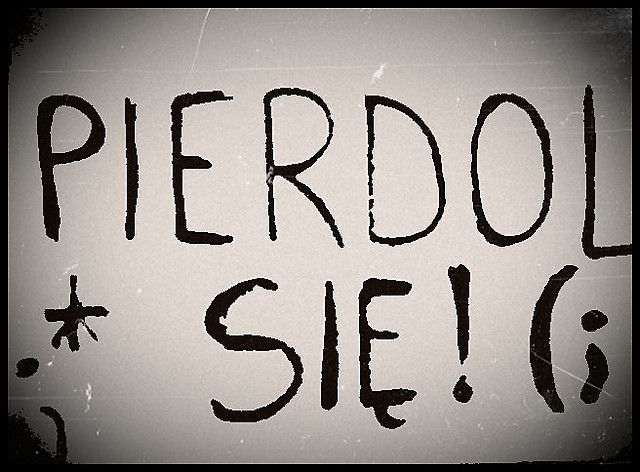 PIERDOL
;* SIĘ! (;